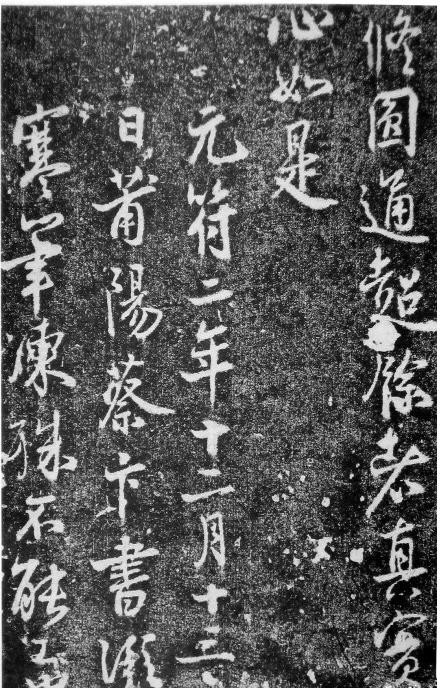 修圓通超餘者真實
心如是
元符二年十二月十三
日莆陽蔡卞書
寒筆凍殊不能